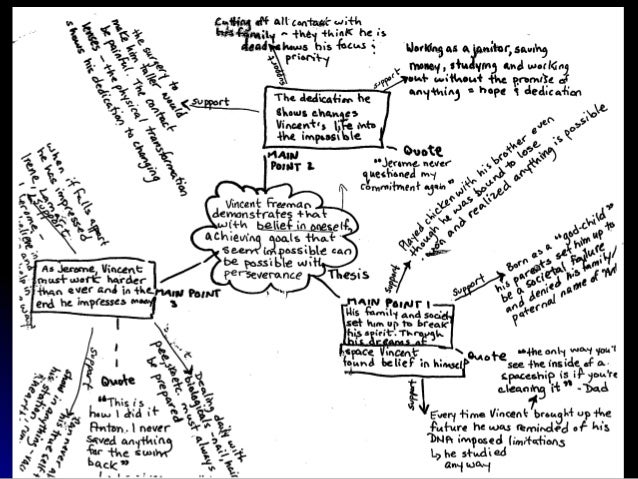 Cutting off all contact with
his family - they think he is
dead shows his focus &
priority
support
Working as a janitor, saving
money, studying and working
out without the promise of
anything = hope & dedication
support
the surgery to
make him taller would
be painful. The contact
lenses - the physical transformation
shows his dedication to changing
support
The dedication he
shows changes
Vincent's life into
the impossible
MAIN
POINT 2
Quote
"Jerome never
questioned my
commitment again"
Vincent Freeman
demonstrates that
with belief in oneself,
achieving goals that
seem impossible can
be possible with
perseverance
Thesis
Played chicken with his brother even
though he was bound to lose
and realized anything is possible
support
Born as a "god-child"
his parents set him up to
be a societal failure
and denied his family/
paternal name of
support
MAIN POINT 1
His family and society
set him up to break
his spirit. Through
his dreams of
space Vincent
found belief in himself
Quote
"the only way you'll
see the inside of a
spaceship is if you're
cleaning it" - Dad
support
Every time Vincent brought up the
future he was reminded of his
DNA imposed limitations
↳ he studied
anyway
when it falls apart
he was impressed
Irene,
support
As Jerome, Vincent
must work harder
than ever and in the
end he impresses many
MAIN POINT
3
Quote
"This is
how I did it
Anton. I never
saved anything
for the swim
back"
support
Dealing daily with
biologicals - nail, hair
pee, etc. must always
be prepared